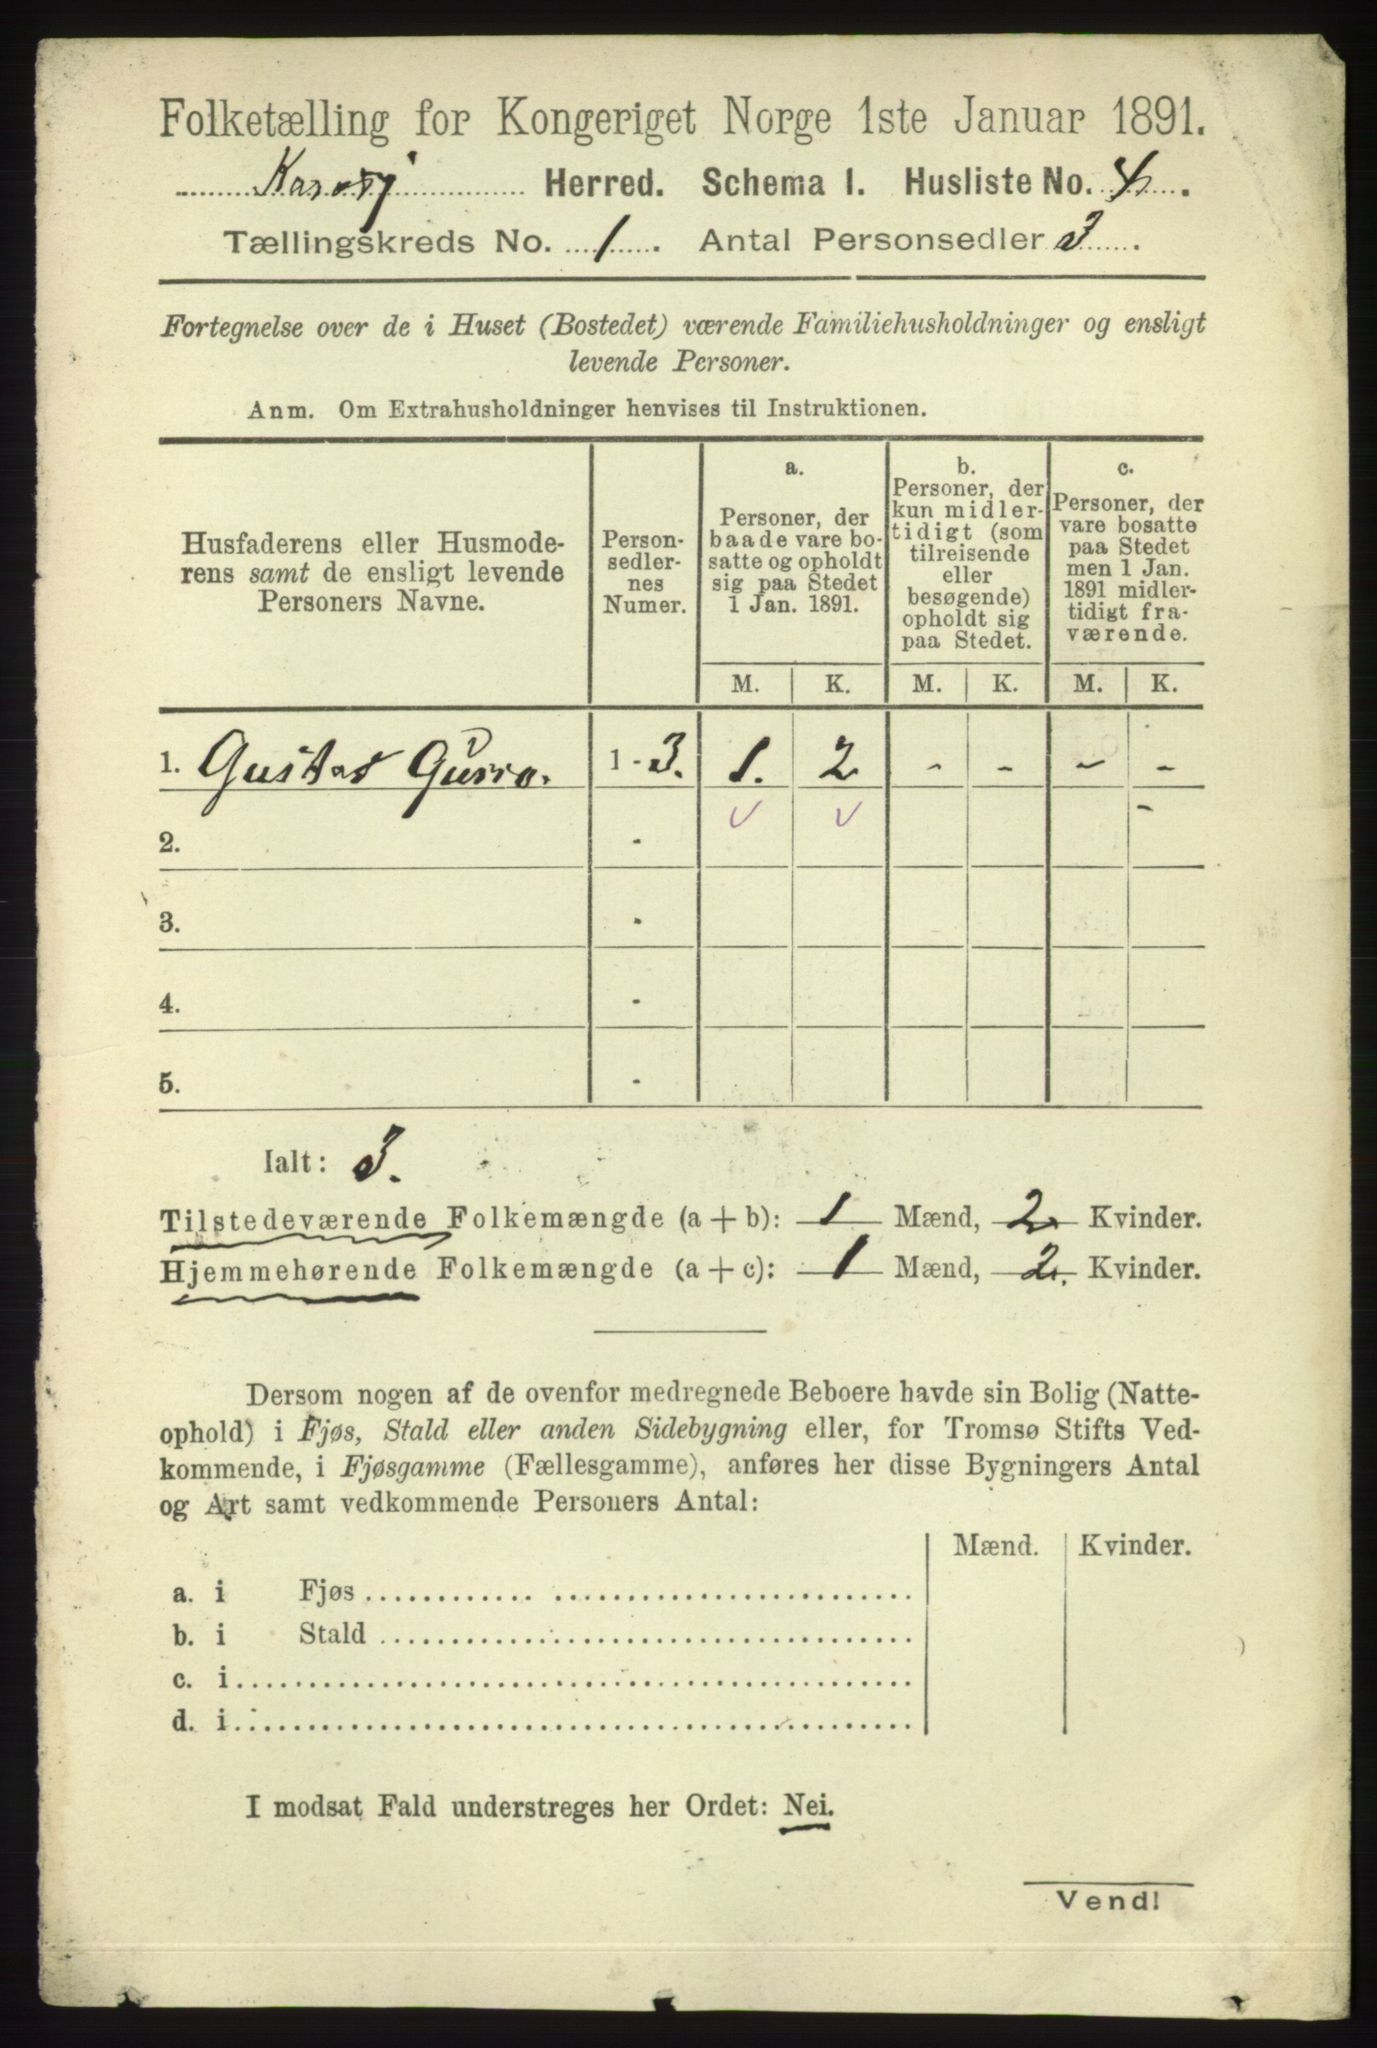 Folketælling for Kongeriget Norge 1ste Januar 1891.
Herred. Schema 1. Husliste No. 4.
Tællingskreds No. 1. Antal Personsedler 3.
Fortegnelse over de i Huset (Bostedet) værende Familiehusholdninger og ensligt
levende Personer.
Anm. Om Extrahusholdninger henvises til Instruktionen.
Husfaderens eller Husmode-
rens samt de ensligt levende
Personers Navne.
Person-
sedler-
nes
Numer.
a.
Personer, der
baade vare bo-
satte og opholdt
sig paa Stedet
1 Jan. 1891.
b.
Personer, der
kun midler-
tidigt (som
tilreisende
eller
besøgende)
opholdt sig
paa Stedet.
c.
Personer, der
vare bosatte
paa Stedet
men 1 Jan.
1891 midler-
tidigt fra-
værende.
M. K. M. K. M. K.
1. Gustav 1 - 3. 1. 2 - - - -
2. -
3. -
4. -
5. -
Ialt: 3.
Tilstedeværende Folkemængde (a + b): 1 Mænd, 2 Kvinder.
Hjemmehørende Folkemængde (a + c): 1 Mænd, 2. Kvinder.
Dersom nogen af de ovenfor medregnede Beboere havde sin Bolig (Natte-
ophold) i Fjøs, Stald eller anden Sidebygning eller, for Tromsø Stifts Ved-
kommende, i Fjøsgamme (Fællesgamme), anføres her disse Bygningers Antal
og Art samt vedkommende Personers Antal:
Mænd. Kvinder.
a. i Fjøs
b. i Stald
c. i
d. i
I modsat Fald understreges her Ordet: Nei.
Vend!